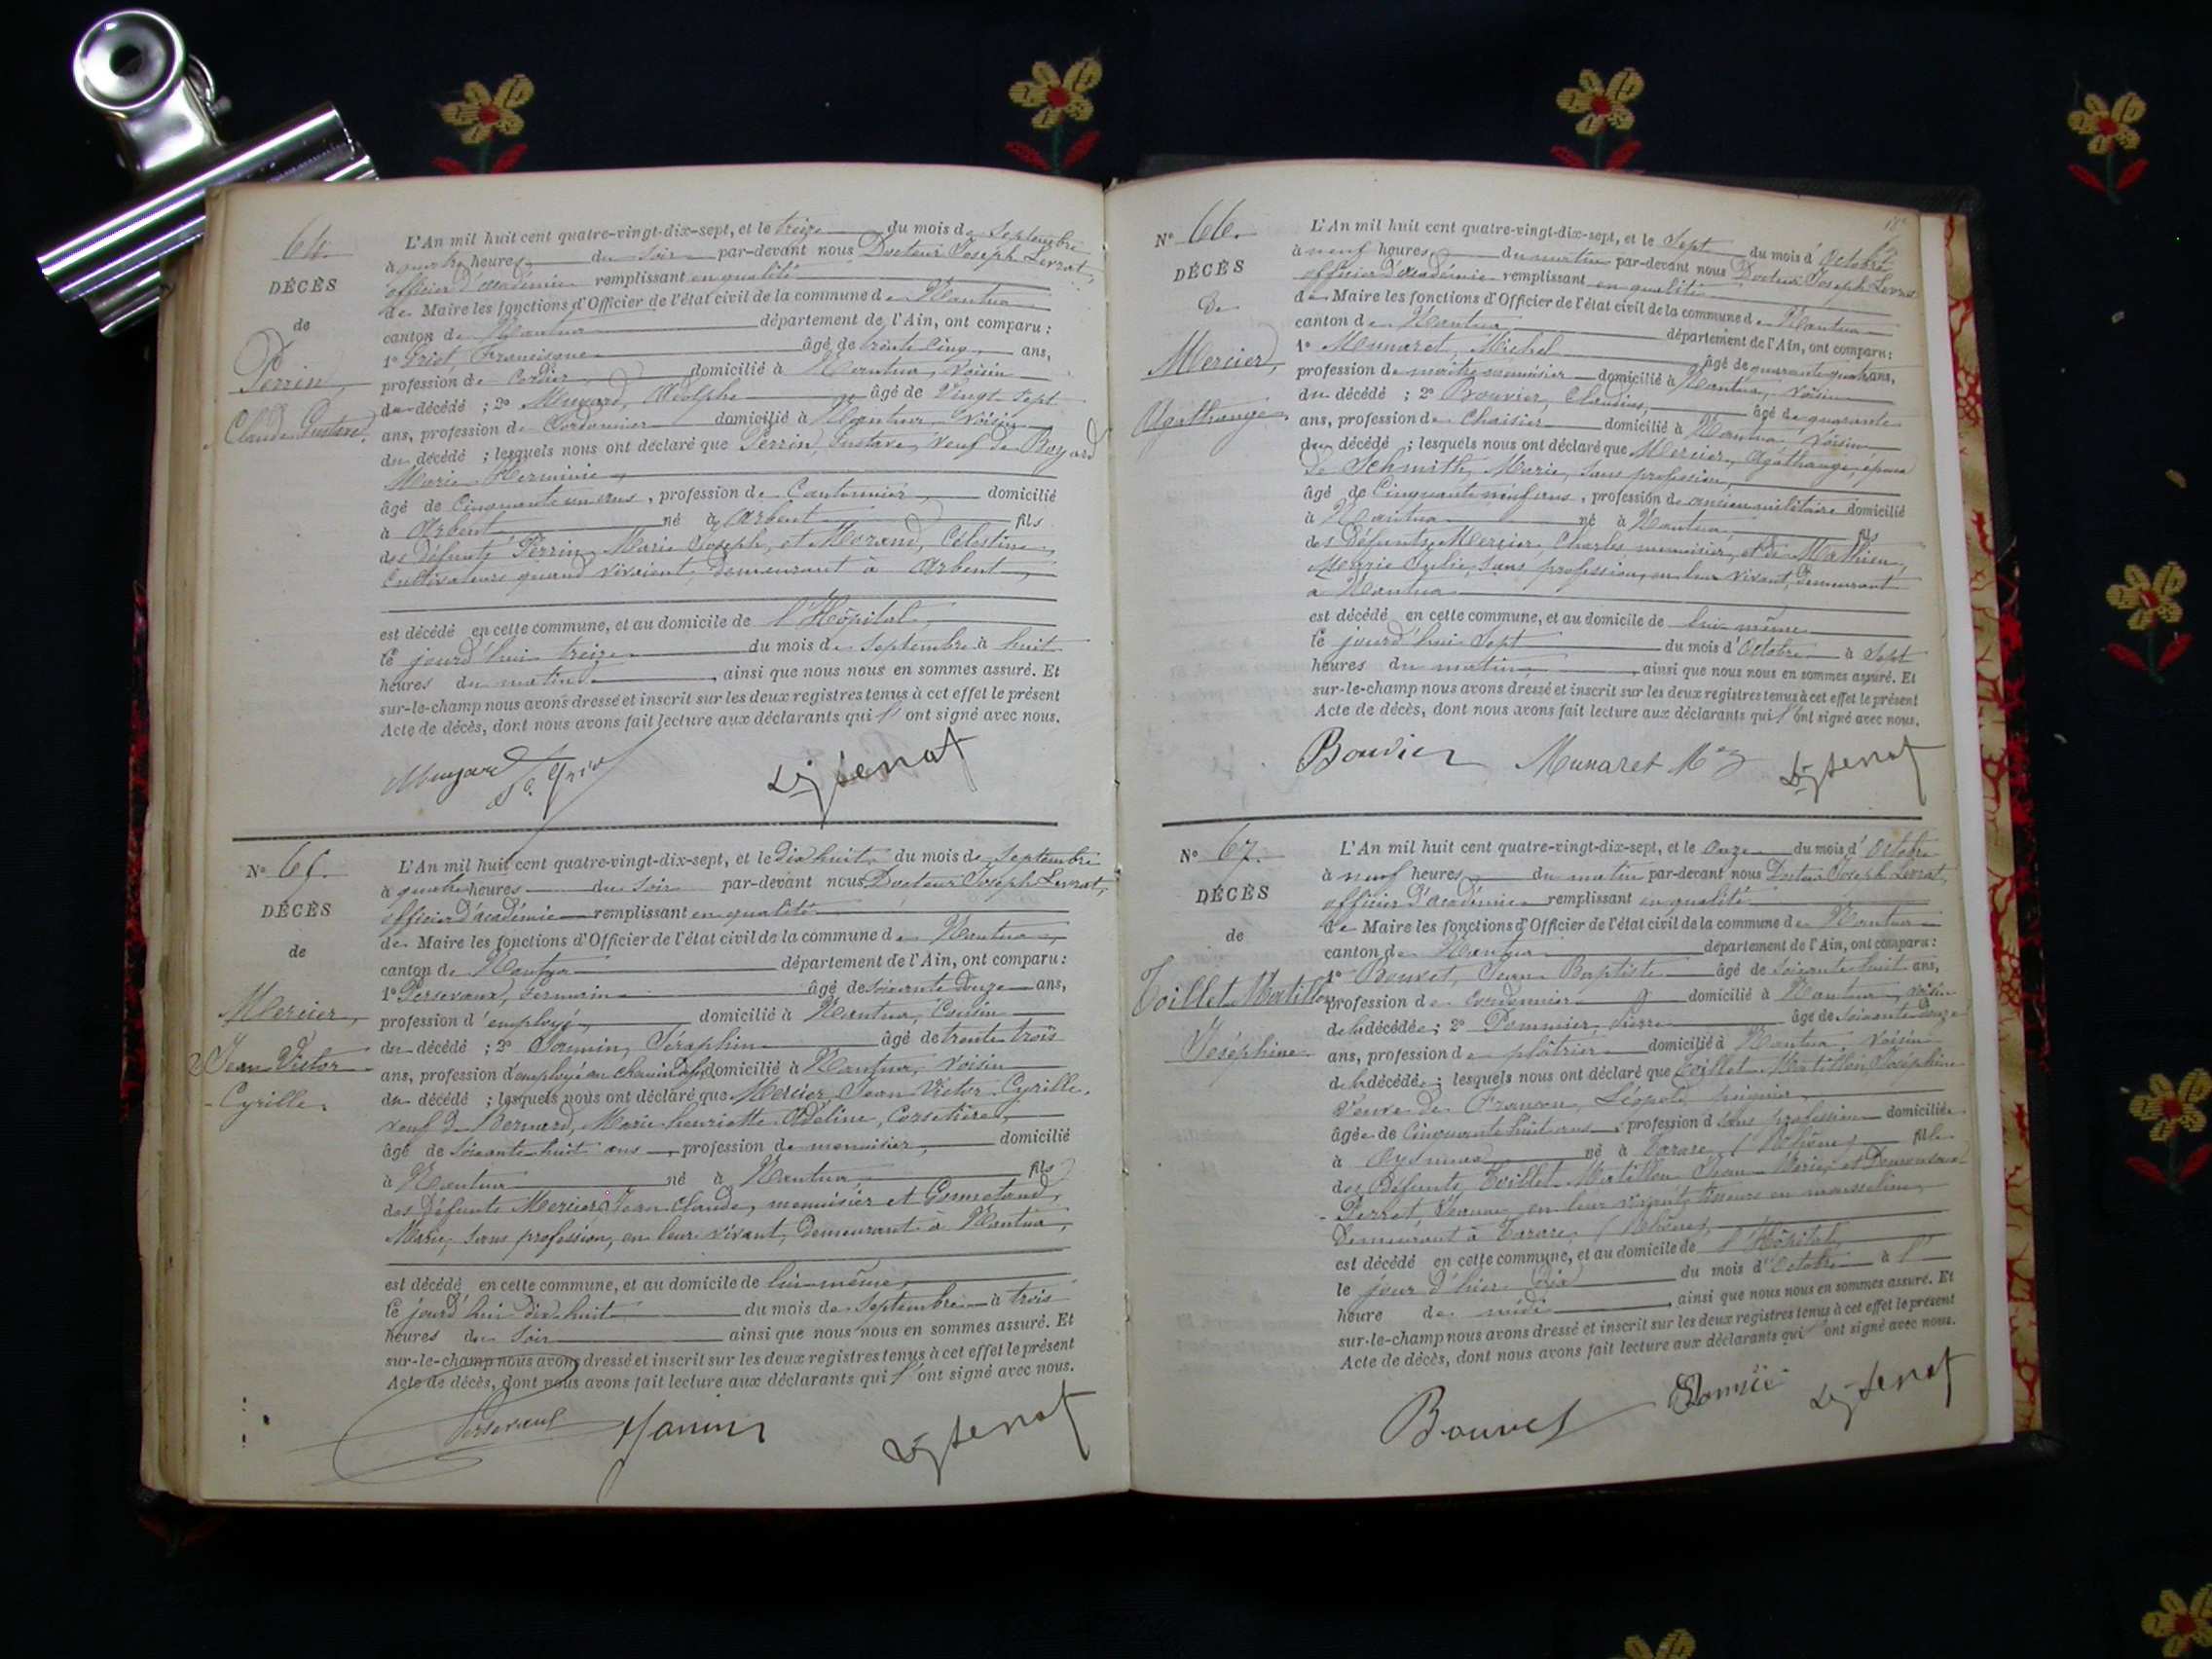 64.
DÉCÈS
de
Perrin,
Claude Gustave.
L'An mil huit cent quatre-vingt-dix-sept, et le treize du mois de Septembre
à quatre heures du soir par-devant nous Docteur Joseph Levrat,
officier d'académie remplissant en qualité
de Maire les fonctions d'Officier de l'état civil de la commune de Nantua
canton de Nantua département de l'Ain, ont comparu :
1° Griot, Francisque âgé de trente cinq ans,
profession de Cordier domicilié à Nantua, Voisin
du décédé ; 2° Adolphe âgé de Vingt Sept
ans, profession de Cordonnier domicilié à Nantua Voisin
du décédé ; lesquels nous ont déclaré que Perrin, Gustave, Veuf de Boyard
Marie Herminie
âgé de Cinquante un ans, profession de Cantonnier domicilié
à Arbent né à Arbent fils
des Défunts Perrin, Marie Joseph, et Morand, Célestine,
Cultivateurs quand vivaient, demeurant à Arbent
est décédé en cette commune, et au domicile de l'Hôpital,
le jourd'hui treize du mois de Septembre à huit
heures du matin ainsi que nous nous en sommes assuré. Et
sur-le-champ nous avons dressé et inscrit sur les deux registres tenus à cet effet le présent
Acte de décès, dont nous avons fait lecture aux déclarants qui l'ont signé avec nous.
N° 65.
DÉCÈS
de
Mercier,
Jean Victor
Cyrille.
L'An mil huit cent quatre-vingt-dix-sept, et le Dix huit du mois de Septembre
à quatre heures du soir par-devant nous Docteur Joseph Levrat,
officier d'académie remplissant en qualité
de Maire les fonctions d'Officier de l'état civil de la commune de Nantua,
canton de Nantua département de l'Ain, ont comparu :
1° Persevaux, Germain âgé de Soixante Douze ans,
profession d'employé, domicilié à Nantua, Cousin
du décédé ; 2° Séraphin âgé de trente trois
ans, profession d'employé au chemin de fer domicilié à Nantua, Voisin
du décédé ; lesquels nous ont déclaré que Mercier, Jean Victor Cyrille,
veuf de Bernard, Marie henriette Adeline, Corsetière,
âgé de Soixante huit ans, profession de menuisier, domicilié
à Nantua né à Nantua, fils
des Défunts Mercier, Jean Claude, menuisier et
Marie, Sans profession, en leur vivant, Demeurant à Nantua,
est décédé en cette commune, et au domicile de lui-même,
le jourd'hui Dix huit du mois de Septembre à trois
heures du Soir ainsi que nous nous en sommes assuré. Et
sur-le-champ nous avons dressé et inscrit sur les deux registres tenus à cet effet le présent
Acte de décès, dont nous avons fait lecture aux déclarants qui l'ont signé avec nous.
N° 66.
DÉCÈS
De
Mercier,
Agathange
L'An mil huit cent quatre-vingt-dix-sept, et le Sept du mois d'Octobre
à neuf heures du matin par-devant nous Docteur Joseph Levrat
officier d'académie remplissant en qualité
de Maire les fonctions d'Officier de l'état civil de la commune de Nantua
canton de Nantua département de l'Ain, ont comparu :
1° Munaret, Michel âgé de quarante quatre ans,
profession de maître menuisier domicilié à Nantua, Voisin
du décédé ; 2° Bouvier, Claudius, âgé de quarante
ans, profession de Chaisier domicilié à Nantua Voisin
du décédé ; lesquels nous ont déclaré que Mercier, Agathange, époux
De Schmith, Marie, Sans profession,
âgé de Cinquante neuf ans, profession de ancien militaire domicilié
à Nantua né à Nantua, fils
des Défunts Mercier, Charles, menuisier, et de Mathieu,
Marie Julie, Sans profession, en leur vivant, Demeurant
à Nantua
est décédé en cette commune, et au domicile de lui même
le jourd'hui Sept du mois d'Octobre à Sept
heures du matin, ainsi que nous nous en sommes assuré. Et
sur-le-champ nous avons dressé et inscrit sur les deux registres tenus à cet effet le présent
Acte de décès, dont nous avons fait lecture aux déclarants qui l'ont signé avec nous.
Bouvier Munaret
N° 67.
DÉCÈS
de
Toillet Matillon
Joséphine
L'An mil huit cent quatre-vingt-dix-sept, et le Onze du mois d'Octobre
à neuf heures du matin par-devant nous Docteur Joseph Levrat,
officier d'académie remplissant en qualité
de Maire les fonctions d'Officier de l'état civil de la commune de Nantua
canton de Nantua département de l'Ain, ont comparu :
1° Bouvet, Jean Baptiste âgé de Soixante huit ans,
profession de Cordonnier domicilié à Nantua, voisin
de la décédée ; 2° Pierre âgé de Soixante douze
ans, profession de plâtrier domicilié à Nantua, Voisin
de la décédée ; lesquels nous ont déclaré que Toillet Matillon Joséphine
Veuve de Léopold,
âgée de Cinquante huit ans, profession d Sans profession domiciliée
à né à Tarare (Rhône) fille
des Défunts Toillet Matillon Jean Marie, et
Perret en leur vivant, tisseurs en mousseline,
Demeurant à Tarare, (Rhône)
est décédé en cette commune, et au domicile de l'Hôpital,
le jour d'hier Dix du mois d'Octobre à l'
heure de midi ainsi que nous nous en sommes assuré. Et
sur-le-champ nous avons dressé et inscrit sur les deux registres tenus à cet effet le présent
Acte de décès, dont nous avons fait lecture aux déclarants qui l'ont signé avec nous.
Bouvet